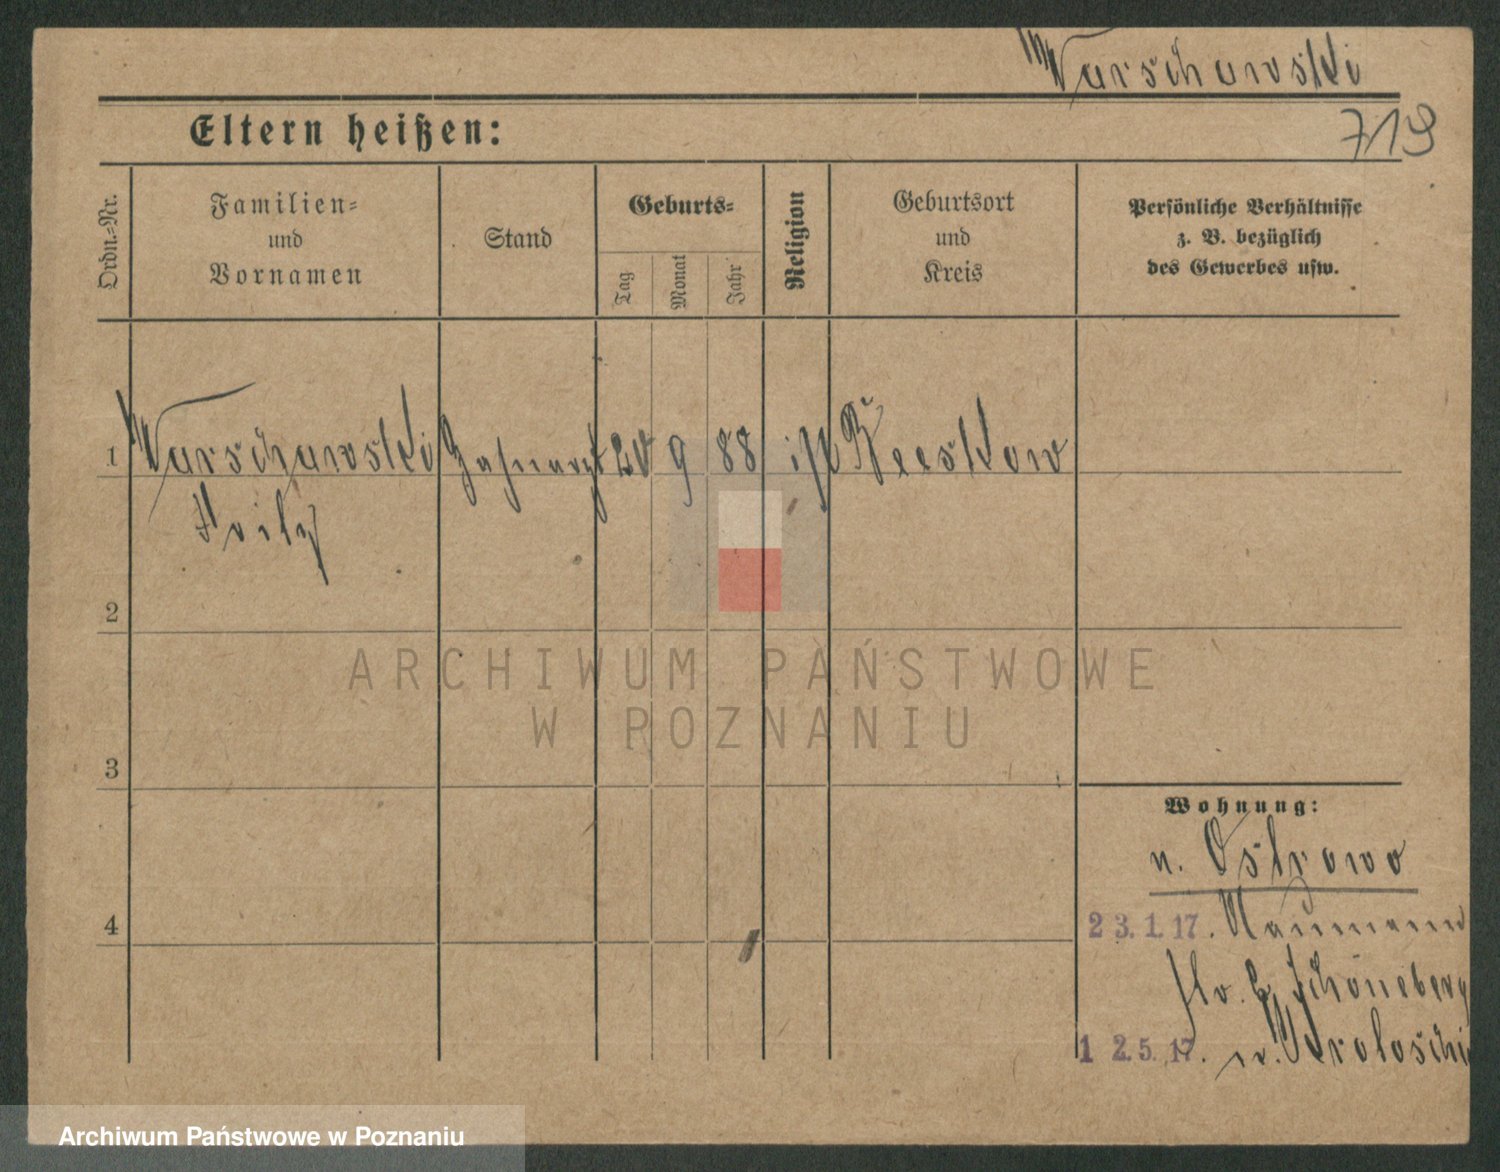 Warschawski
719
Eltern heißen:
Ordn.-Nr.
Familien-
und
Vornamen
Stand
Geburts-
Tag
Monat
Jahr
Religion
Geburtsort
und
Kreis
Persönliche Verhältnisse
z. B. bezüglich
des Gewerbes usw.
1 Warschawski Zahnarzt 20 9 88 Beeskow
Fritz
2
3
4
Wohnung:
n. Ostrowo
23.1.17. Naumann
str. Schöneberg
12.5.17. n. Krotoschin
ARCHIWUM PAŃSTWOWE
W POZNANIU
Archiwum Państwowe w Poznaniu